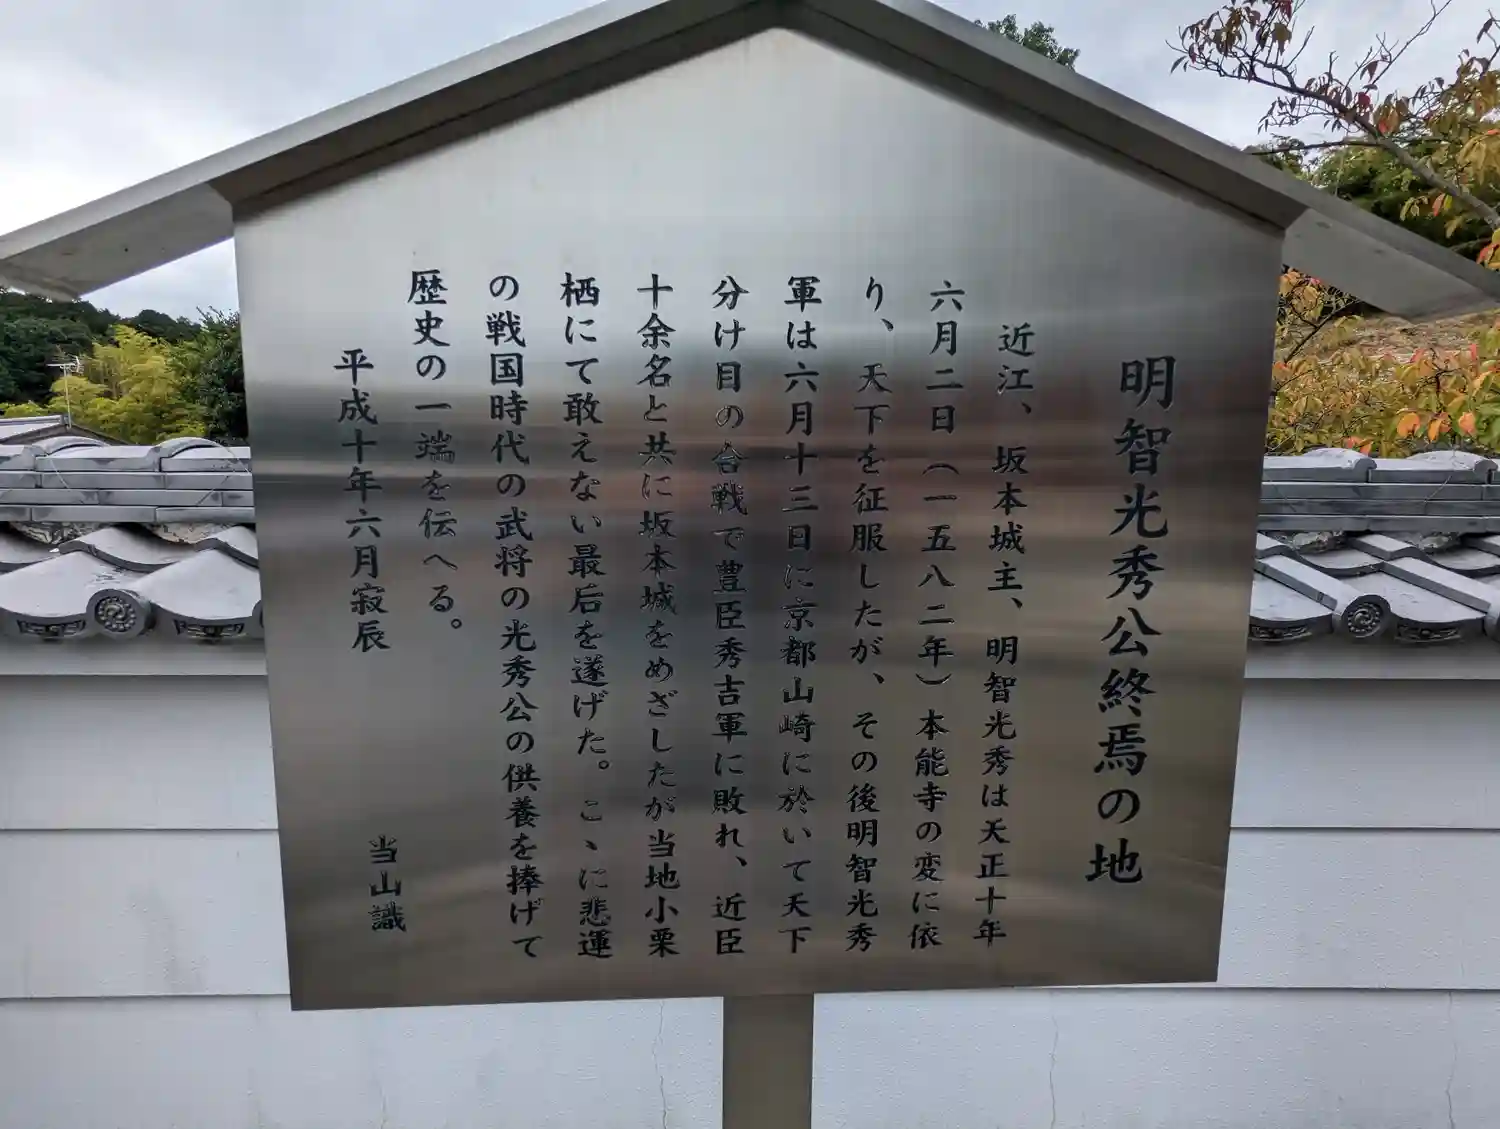 明智光秀公終焉の地
近江、坂本城主、明智光秀は天正十年
六月二日（一五八二年）本能寺の変に依
り、天下を征服したが、その後明智光秀
軍は六月十三日に京都山崎に於いて天下
分け目の合戦で豊臣秀吉軍に敗れ、近臣
十余名と共に坂本城をめざしたが当地小栗
栖にて敢えない最后を遂げた。こゝに悲運
の戦国時代の武将の光秀公の供養を捧げて
歴史の一端を伝へる。
平成十年六月寂辰
当山識